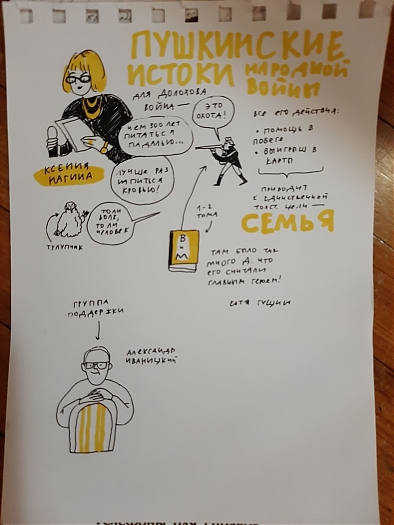 ПУШКИНСКИЕ
ИСТОКИ НАРОДНОЙ
ВОЙНЫ
ДЛЯ ДОЛОХОВА
ВОЙНА —
ЭТО
ОХОТА!
ЧЕМ 300 ЛЕТ
ПИТАТЬСЯ
ПАДАЛЬЮ...
ЛУЧШЕ РАЗ
НАПИТЬСЯ
КРОВЬЮ!
КСЕНИЯ
НАГИНА
ВСЕ ЕГО ДЕЙСТВИЯ:
• ПОМОЩЬ В
ПОБЕГЕ
• ВЫИГРЫШ В
КАРТЫ
ПРИХОДИТ
К ЕДИНСТВЕННОЙ
ТОЛСТ. ЦЕЛИ —
СЕМЬЯ
ТО ЛИ
ВОЛК,
ТО ЛИ ЧЕЛОВЕК
ТУЛУПЧИК
1-2
ТОМА
В
и
М
ТАМ БЫЛО ТАК
МНОГО Д. ЧТО
ЕГО СЧИТАЛИ
ГЛАВНЫМ ГЕРОЕМ!
КАТЯ ГУЩИН
ГРУППА
ПОДДЕРЖКИ
АЛЕКСАНДР
ИВАНИЦКИЙ